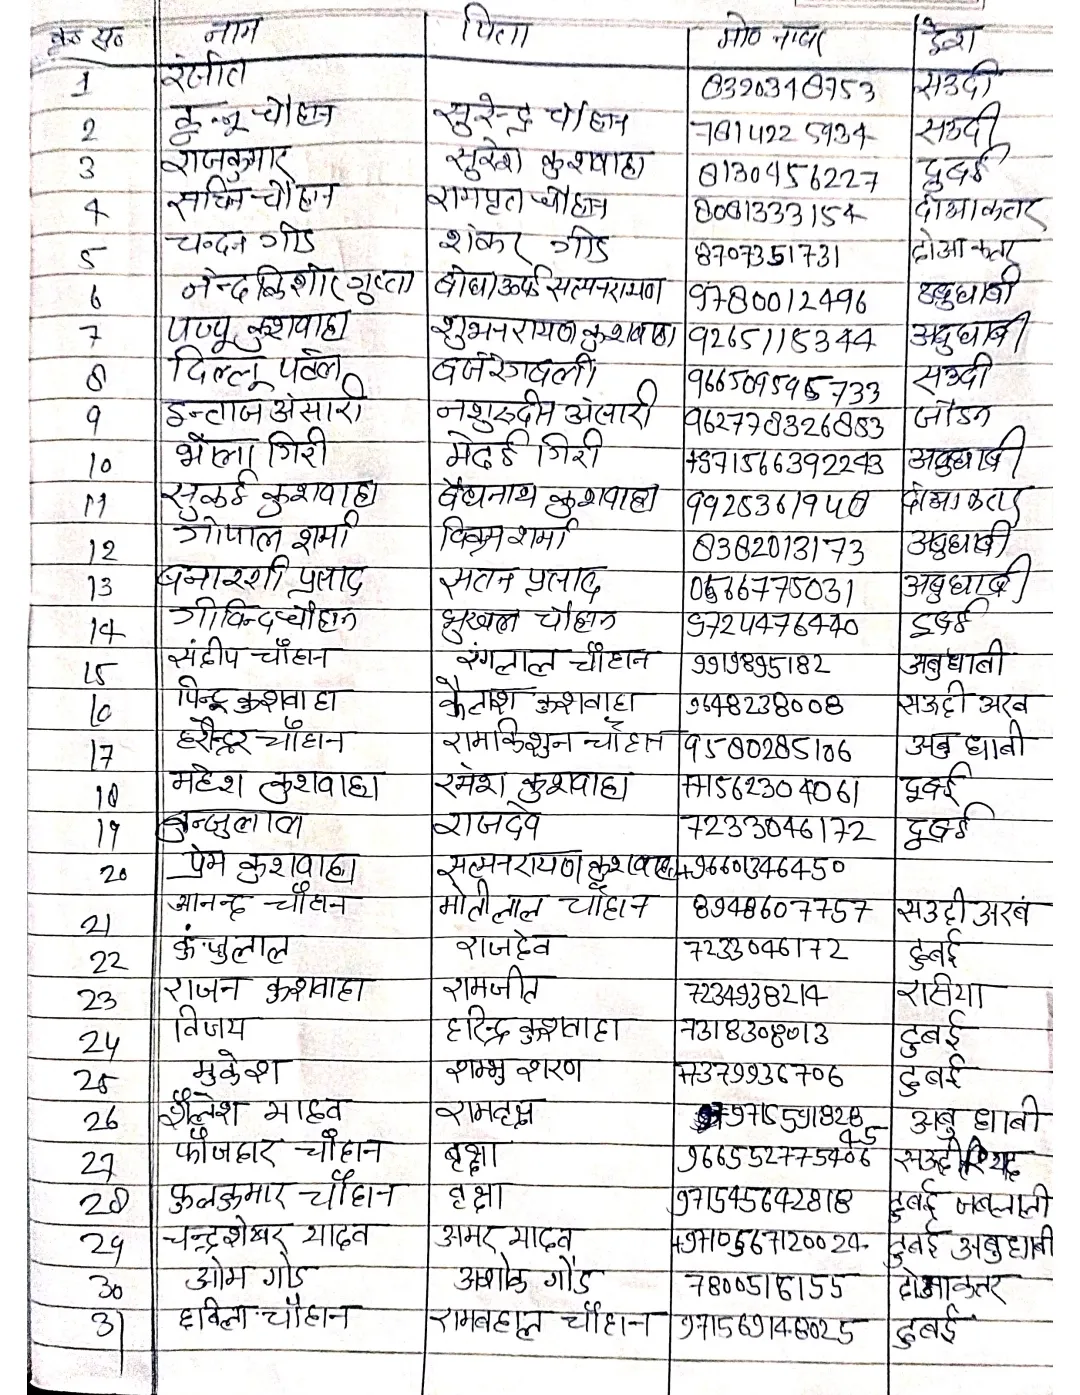 क्र० सं० नाम पिता मो० नम्बर देश
1 रंजीत 8320348753 सउदी
2 कुन्नू चौहान सुरेन्द्र चौहान 7814225934 सउदी
3 राजकुमार सुरेश कुशवाहा 8130456227 दुबई
4 सचिन चौहान रामपृत चौहान 8081333154 दोआ कतर
5 चन्दन गौड शंकर गौड 8707351731 दोआ कतर
6 नन्दकिशोर गुप्ता बोधा उर्फ सत्यनरायण 9780012496 अबुधाबी
7 पप्पू कुशवाहा शुभनरायण कुशवाहा 9265115344 अबुधाबी
8 दिल्लू पटेल बजरंगबली 966509595733 सउदी
9 इन्ताज अंसारी नशुरुद्दीन अंसारी 962778326883 जोडन
10 भोला गिरी मेदई गिरी +971566392243 अबुधाबी
11 सुकई कुशवाहा बैधनाथ कुशवाहा 9925361940 दोआ कतर
12 गोपाल शर्मा विक्रम शर्मा 8382013173 अबुधाबी
13 बनारशी प्रसाद सतन प्रसाद 0566775031 अबुधाबी
14 गोविन्द चौहान भुखल चौहान 9724476440 दुबई
15 संदीप चौहान रंगलाल चौहान 9919895182 अबुधाबी
16 पिन्टू कुशवाहा कैलाश कुशवाहा 9648238008 सऊदी अरब
17 हरीन्द्र चौहान रामकिशुन चौहान 9580285106 अबु धाबी
18 महेश कुशवाहा रमेश कुशवाहा +971562304061 दुबई
19 कुन्जुलाल राजदेव 7233046172 दुबई
20 प्रेम कुशवाहा सत्यनरायण कुशवाहा +96601346450
21 आनन्द चौहान मोतीलाल चौहान 8948607757 सउदी अरब
22 कुंजुलाल राजदेव 7233046172 दुबई
23 राजन कुशवाहा रामजीत 7234938214 रासीया
24 विजय हरिन्द्र कुशवाहा 7318308013 दुबई
25 मुकेश शम्भु शरण 7379936706 दुबई
26 शैलेश यादव रामवृक्ष 971559182845 अबु धाबी
27 फौजदार चौहान बृक्षा 966552775406 सउदी रियाद
28 फुलकुमार चौहान बृक्षा 971545642818 दुबई जबलाली
29 चन्द्रशेखर यादव अमर यादव +9710567120024 दुबई अबुधाबी
30 ओम गोड अशोक गौड 7800516155 दोआ कतर
31 छबिला चौहान रामबहाल चौहान 971569148025 दुबई